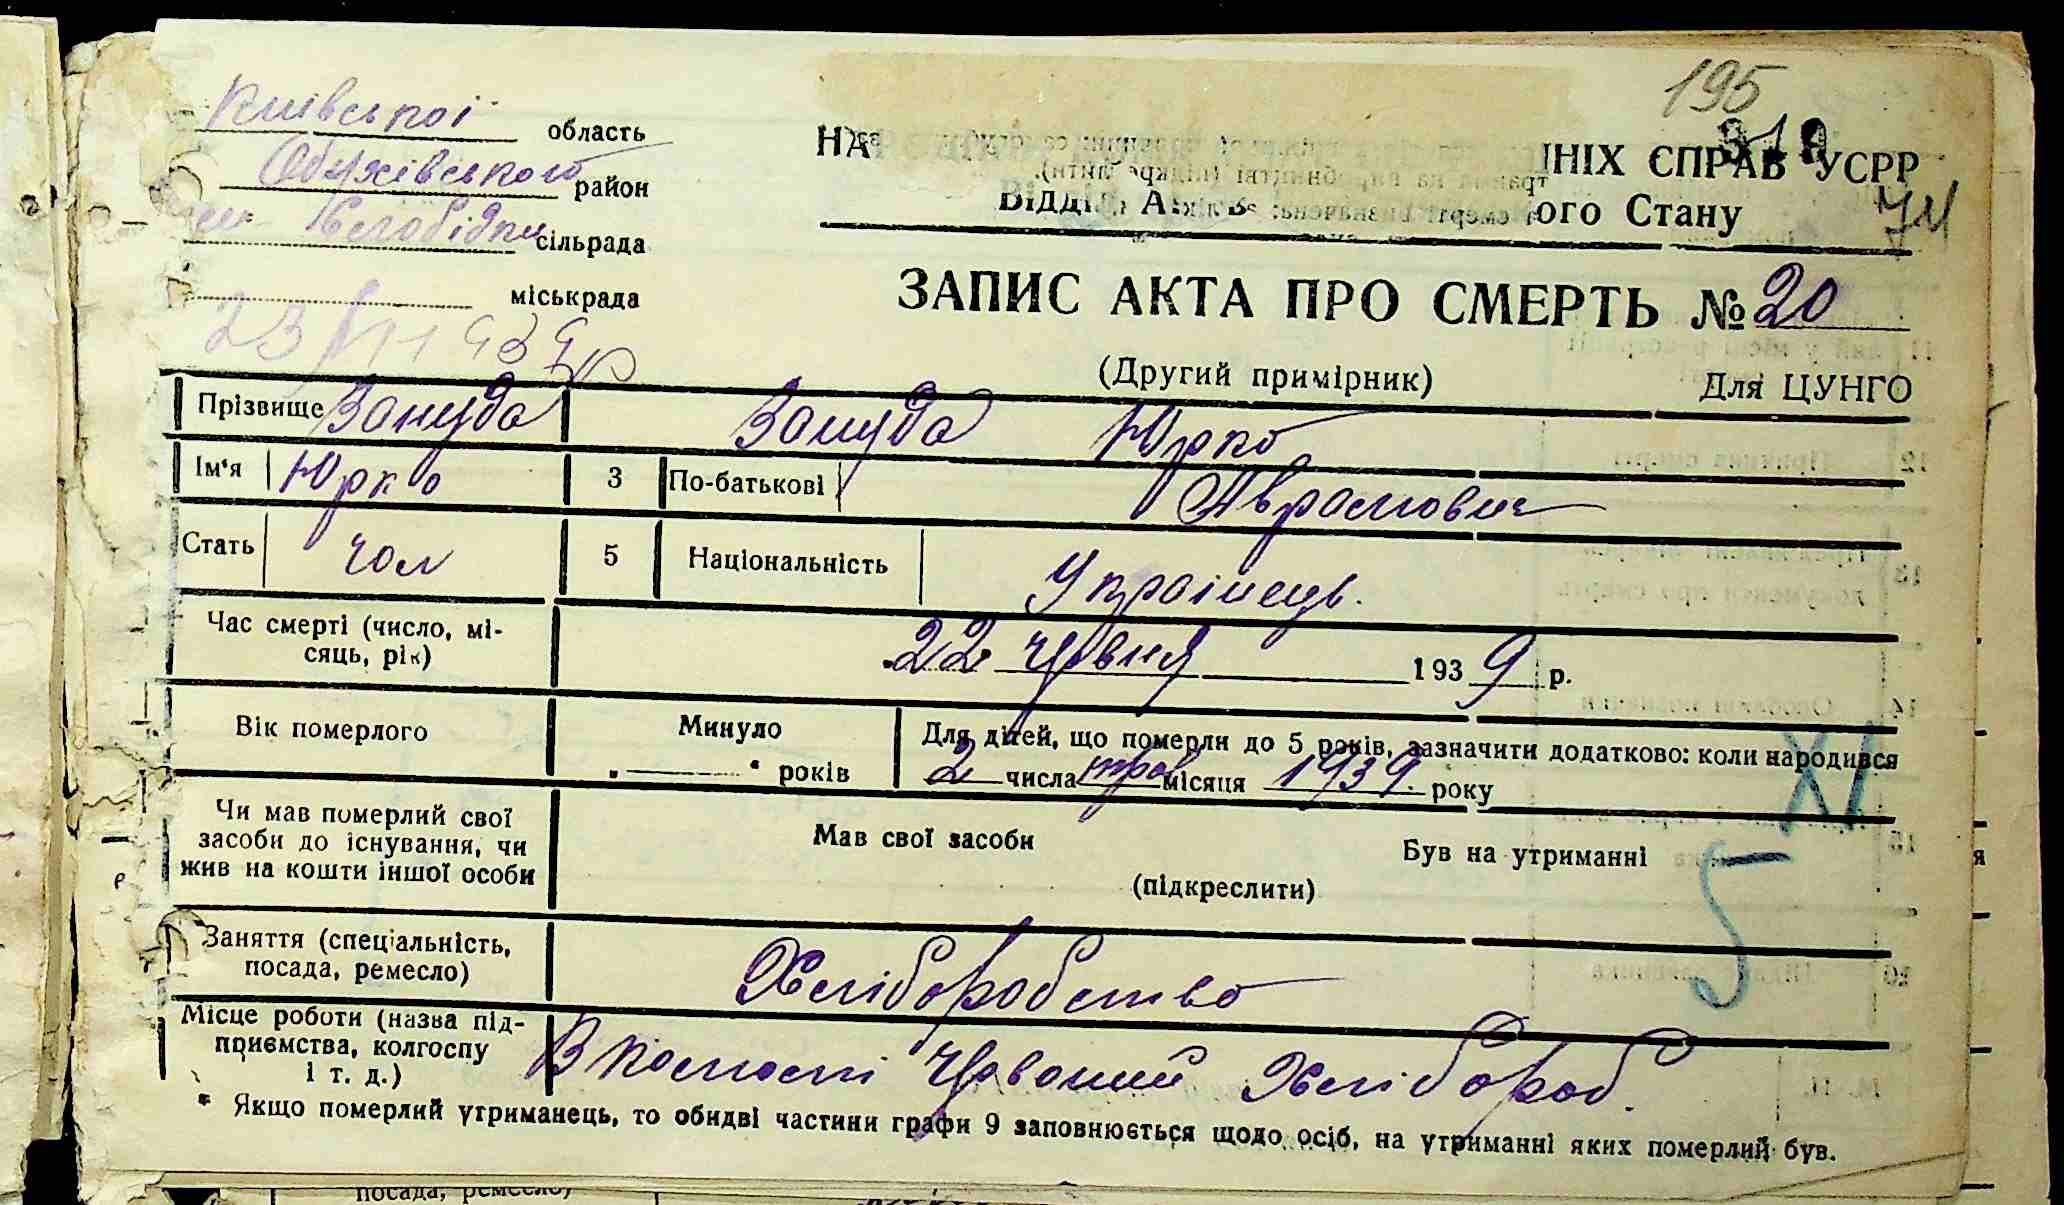 195
Київської область
Обухівського район
Слобідка сільрада
міськрада
НА ІНІХ СПРАВ УСРР
Відділ Актів ого Стану
74
ЗАПИС АКТА ПРО СМЕРТЬ № 20
(Другий примірник) Для ЦУНГО
Прізвище Зануда Зануда Юрко
Ім'я Юрко 3 По-батькові Аврамович
Стать чол 5 Національність Українець.
Час смерті (число, мі-
сяць, рік) 22 червня 1939 р.
Вік померлого Минуло * років
Для дітей, що померли до 5 років, зазначити додатково: коли народився
2 числа трав місяця 1939. року
XI
5
Чи мав померлий свої
засоби до існування, чи
жив на кошти іншої особи
Мав свої засоби Був на утриманні
(підкреслити)
Заняття (спеціальність,
посада, ремесло) Хліборобство
Місце роботи (назва під-
приємства, колгоспу
і т. д.) В колгоспі Червоний Хлібороб.
* Якщо померлий утриманець, то обидві частини графи 9 заповнюється щодо осіб, на утриманні яких померлий був.
посада, ремесло)